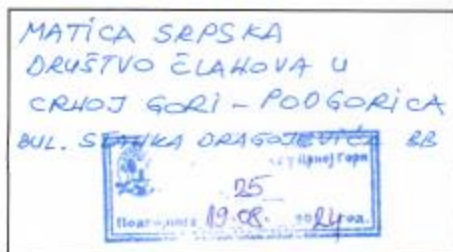 MATICA SRPSKA
DRUŠTVO ČLAHOVA U
CRHOJ GORI - PODGORICA
BUL. STANKA DRAGOJEVIĆA BB
у Црној Гори
25
19.08. 2024 год.